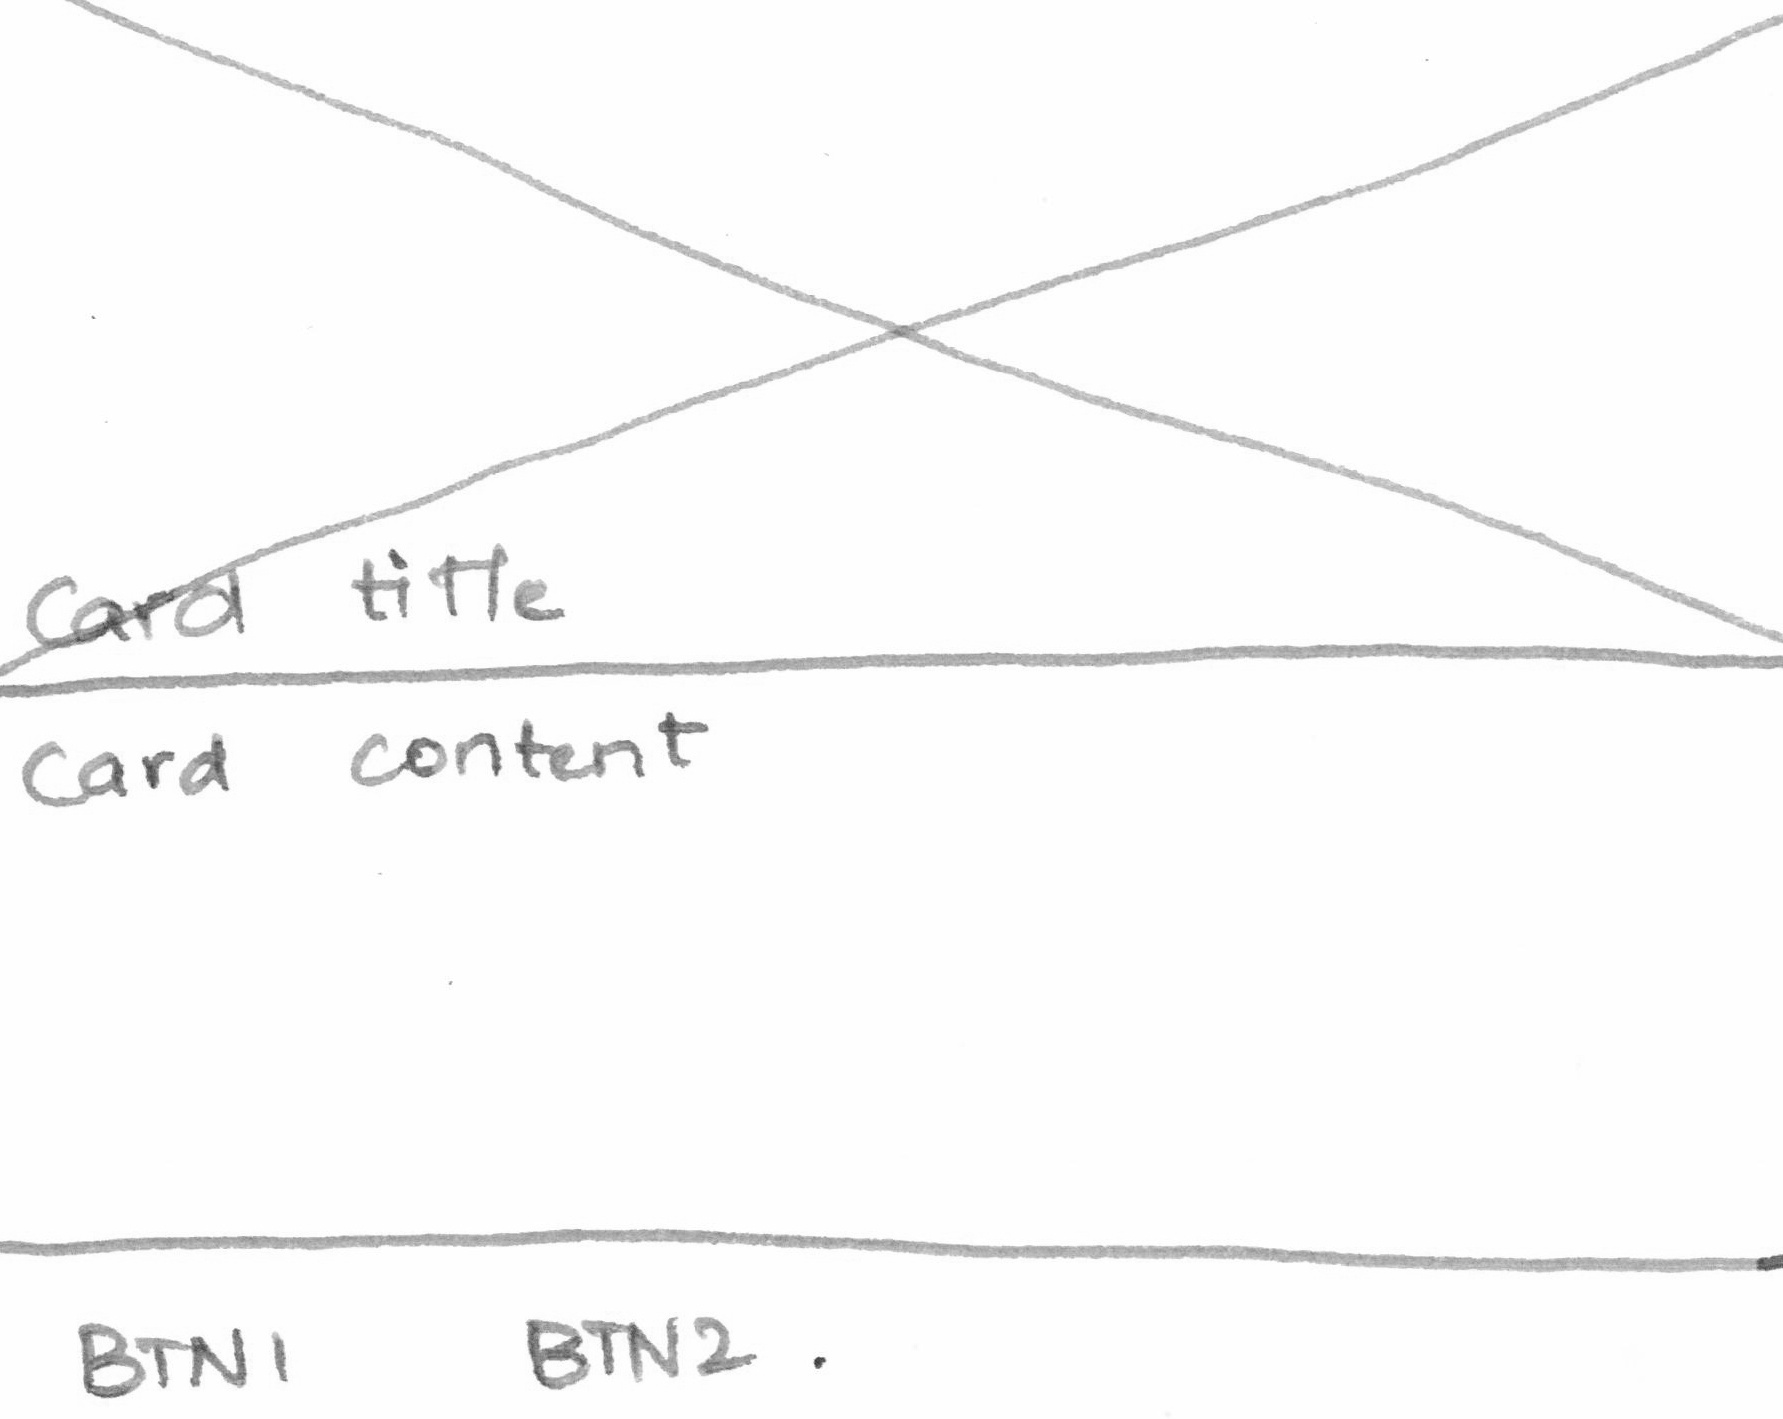 Card title
Card content
BTN1 BTN2 .